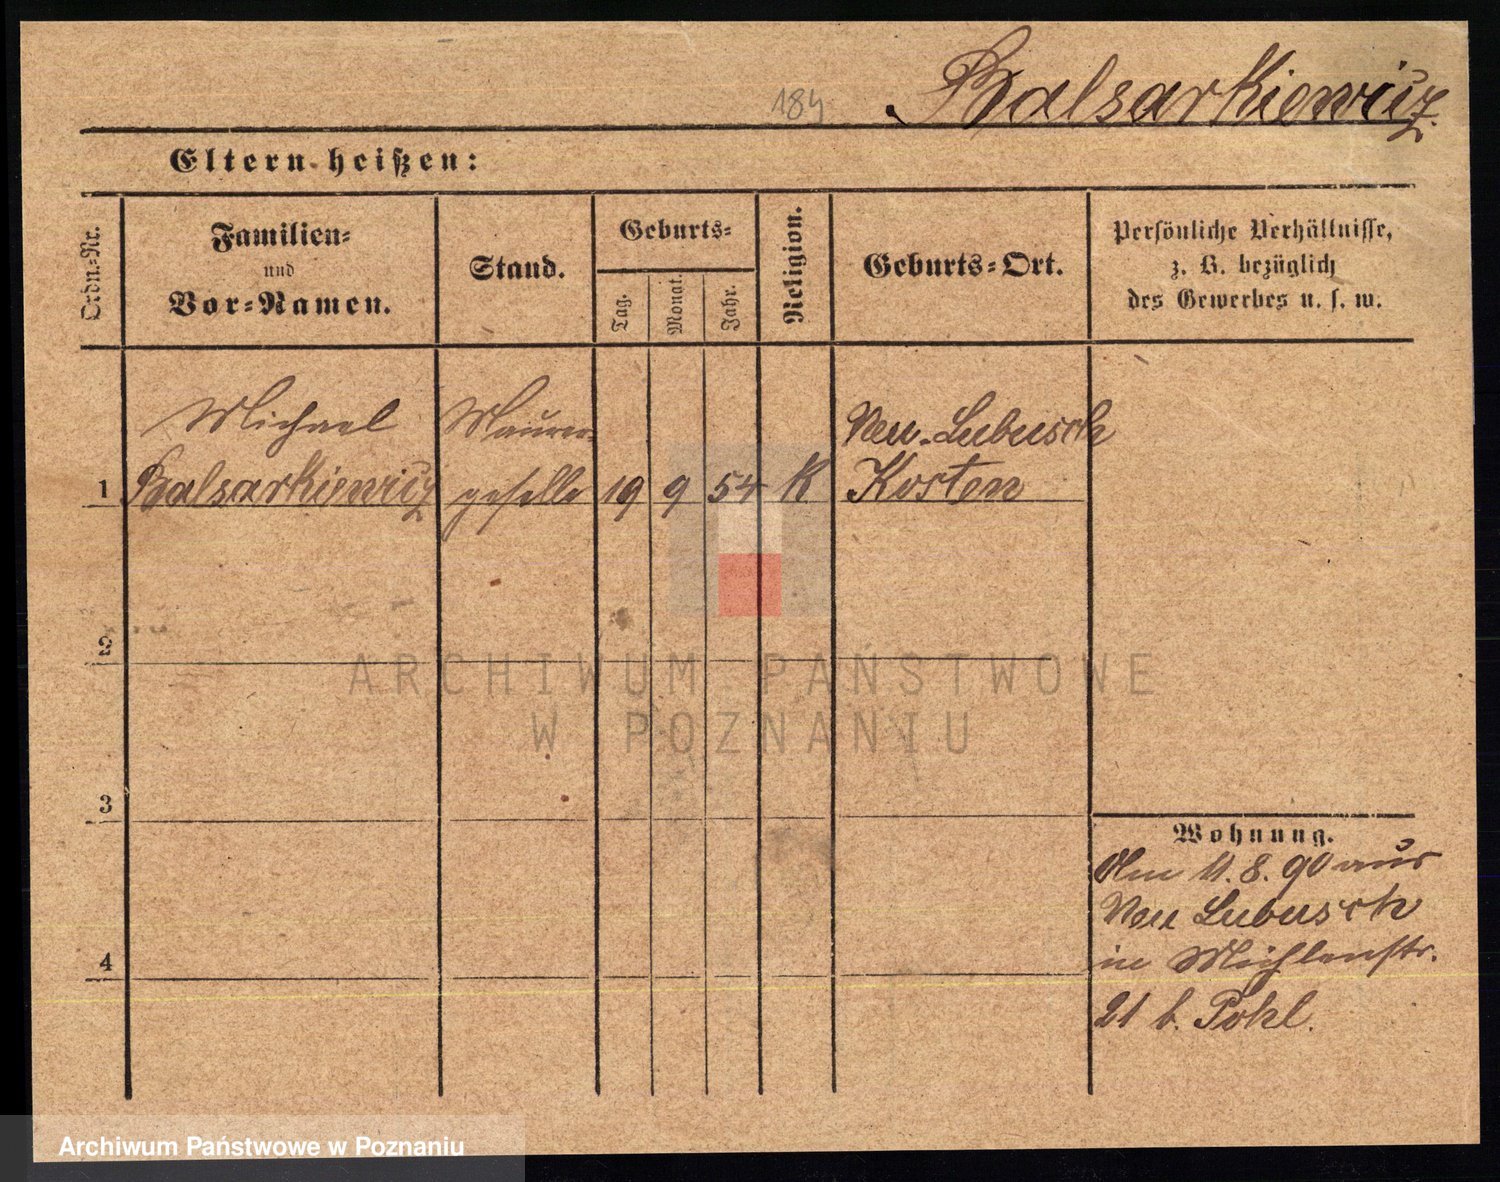 184
Balsarkiewicz.
Eltern heißen:
Ordn.-Nr.
Familien-
und
Vor-Namen.
Stand.
Geburts-
Tag.
Monat.
Jahr.
Religion.
Geburts-Ort.
Persönliche Verhältnisse,
z. B. bezüglich
des Gewerbes u. s. w.
Michael
Balsarkiewicz
Maurer-
geselle
1
19
9
54
K
Neu-Lubusch
Kosten
2
3
4
Wohnung.
Am 11.8.90 aus
Neu Lubusch
in Mühlenstr.
21 b. Pohl.
ARCHIWUM PAŃSTWOWE
W POZNANIU
Archiwum Państwowe w Poznaniu